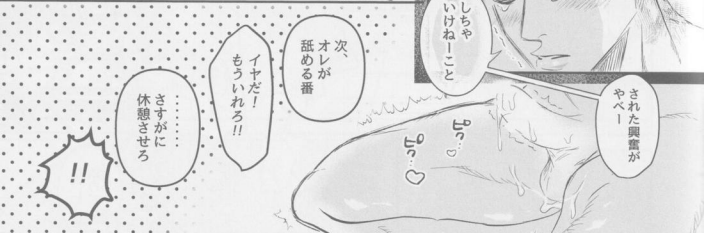 しちゃ
いけねーこと
された興奮が
やべー
ピク…♡
ピク…♡
次、
オレが
舐める番
イヤだ!
もういれろ!!
………
さすがに
休憩させろ
!!